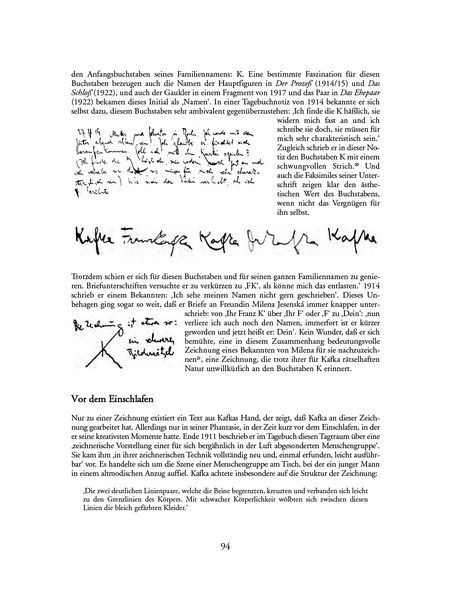 den Anfangsbuchstaben seines Familiennamens: K. Eine bestimmte Faszination für diesen
Buchstaben bezeugen auch die Namen der Hauptfiguren in Der Prozeß (1914/15) und Das
Schloß (1922), und auch der Gaukler in einem Fragment von 1917 und das Paar in Das Ehepaar
(1922) bekamen dieses Initial als ‚Namen‘. In einer Tagebuchnotiz von 1914 bekannte er sich
selbst dazu, diesem Buchstaben sehr ambivalent gegenüberzustehen: ‚Ich finde die K häßlich, sie
widern mich fast an und ich
schreibe sie doch, sie müssen für
mich sehr charakteristisch sein.‘
Zugleich schrieb er in dieser No-
tiz den Buchstaben K mit einem
schwungvollen Strich.²⁰ Und
auch die Faksimiles seiner Unter-
schrift zeigen klar den ästhe-
tischen Wert des Buchstabens,
wenn nicht das Vergnügen für
ihn selbst.
Kafka Franz Kafka Kafka Kafka
Trotzdem schien er sich für diesen Buchstaben und für seinen ganzen Familiennamen zu genie-
ren. Briefunterschriften versuchte er zu verkürzen zu ‚FK‘, als könne mich das entlasten.‘ 1914
schrieb er einem Bekannten: ‚Ich sehe meinen Namen nicht gern geschrieben‘. Dieses Un-
behagen ging sogar so weit, daß er Briefe an Freundin Milena Jesenská immer knapper unter-
schrieb: von ‚Ihr Franz K‘ über ‚Ihr F‘ oder ‚F‘ zu ‚Dein‘: ‚nun
verliere ich auch noch den Namen, immerfort ist er kürzer
geworden und jetzt heißt er: Dein‘. Kein Wunder, daß er sich
bemühte, eine in diesem Zusammenhang bedeutungsvolle
Zeichnung eines Bekannten von Milena für sie nachzuzeich-
nen²¹, eine Zeichnung, die trotz ihrer für Kafka rätselhaften
Natur unwillkürlich an den Buchstaben K erinnert.
Die Zeichnung ist etwa so:
ein schweres
Bilderrätsel
Vor dem Einschlafen
Nur zu einer Zeichnung existiert ein Text aus Kafkas Hand, der zeigt, daß Kafka an dieser Zeich-
nung gearbeitet hat. Allerdings nur in seiner Phantasie, in der Zeit kurz vor dem Einschlafen, in der
er seine kreativsten Momente hatte. Ende 1911 beschrieb er im Tagebuch diesen Tagtraum über eine
‚zeichnerische Vorstellung einer für sich bergähnlich in der Luft abgesonderten Menschengruppe‘.
Sie kam ihm ‚in ihrer zeichnerischen Technik vollständig neu und, einmal erfunden, leicht ausführ-
bar‘ vor. Es handelte sich um die Szene einer Menschengruppe am Tisch, bei der ein junger Mann
in einem altmodischen Anzug auffiel. Kafka achtete insbesondere auf die Struktur der Zeichnung:
‚Die zwei deutlichen Linienpaare, welche die Beine begrenzten, kreuzten und verbanden sich leicht
zu den Grenzlinien des Körpers. Mit schwacher Körperlichkeit wölbten sich zwischen diesen
Linien die bleich gefärbten Kleider.‘
94